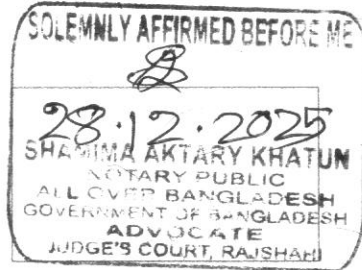 SOLEMNLY AFFIRMED BEFORE ME
28.12.2025
SHAMIMA AKTARY KHATUN
NOTARY PUBLIC
ALL OVER BANGLADESH
GOVERNMENT OF BANGLADESH
ADVOCATE
JUDGE'S COURT, RAJSHAHI